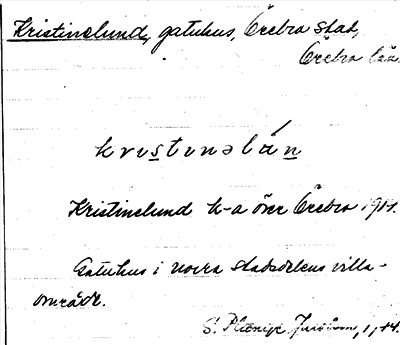 Kristinelund, gatuhus, Örebro stad,
Örebro län.
kristinəlún
Kristinelund k-a över Örebro 1911.
Gatuhus i norra stadsdelens villa-
område.
S.